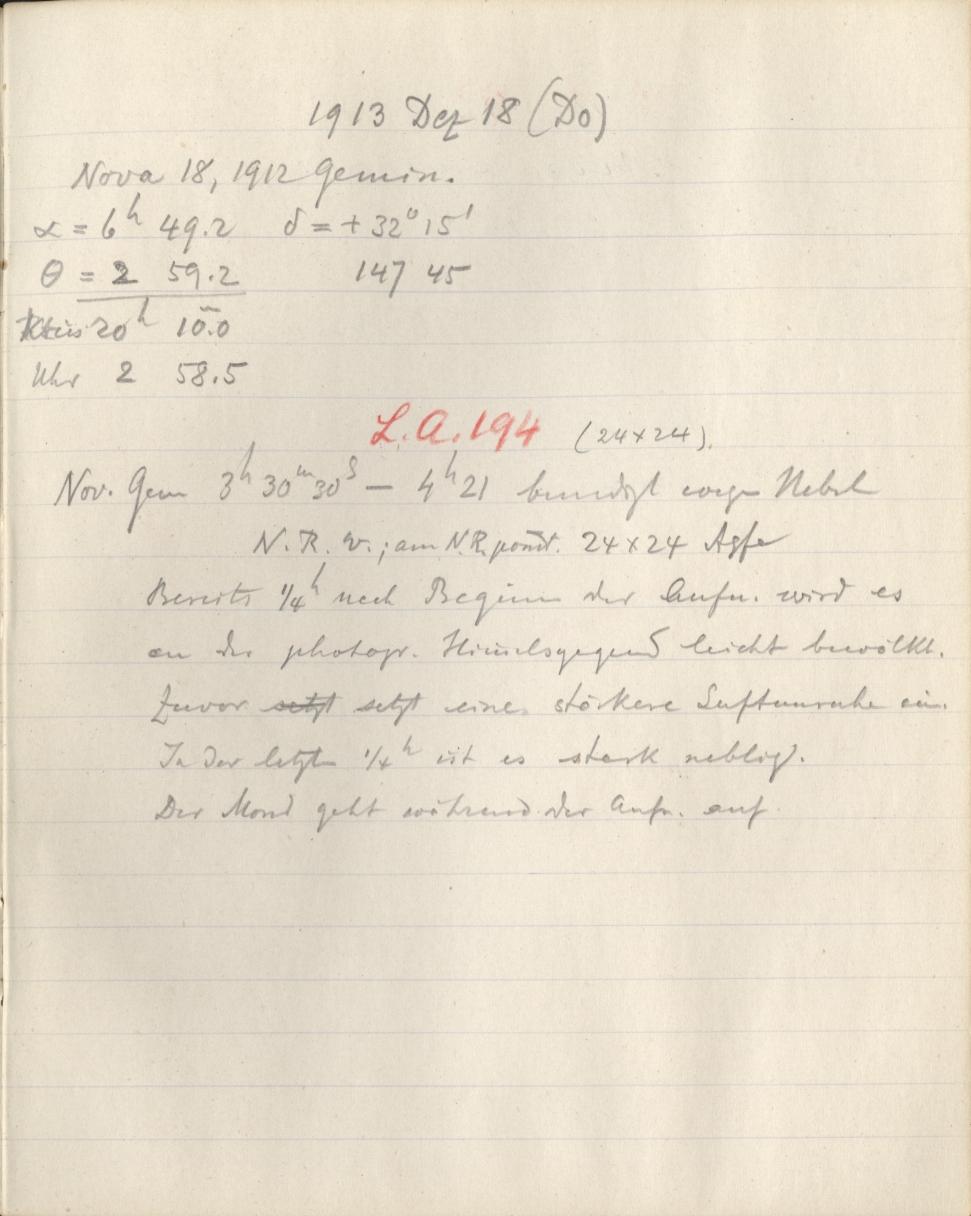 1913 Dez 18 (Do)
Nova 18, 1912 Gemin.
α = 6ʰ 49.2 δ = +32° 15'
θ = 2 59.2 147 45
20ʰ 10ᵐ.0
Uhr 2 58.5
L.A. 194 (24×24).
Nov. Gem 3ʰ 30ᵐ 30ˢ — 4ʰ 21 beendigt wegen Nebel
N. R. W.; am N.R. 24×24 Agfa
Bereits ¼ʰ nach Beginn der Aufn. wird es
an der photogr. Himmelsgegend leicht bewölkt.
Zuvor setzt setzt eine stärkere Luftunruhe ein.
In der letzten ¼ʰ ist es stark neblig.
Der Mond geht während der Aufn. auf.